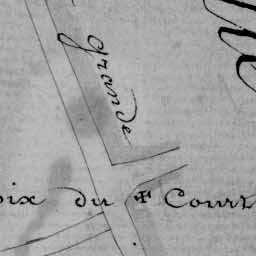 grande
oix du ✠ Court